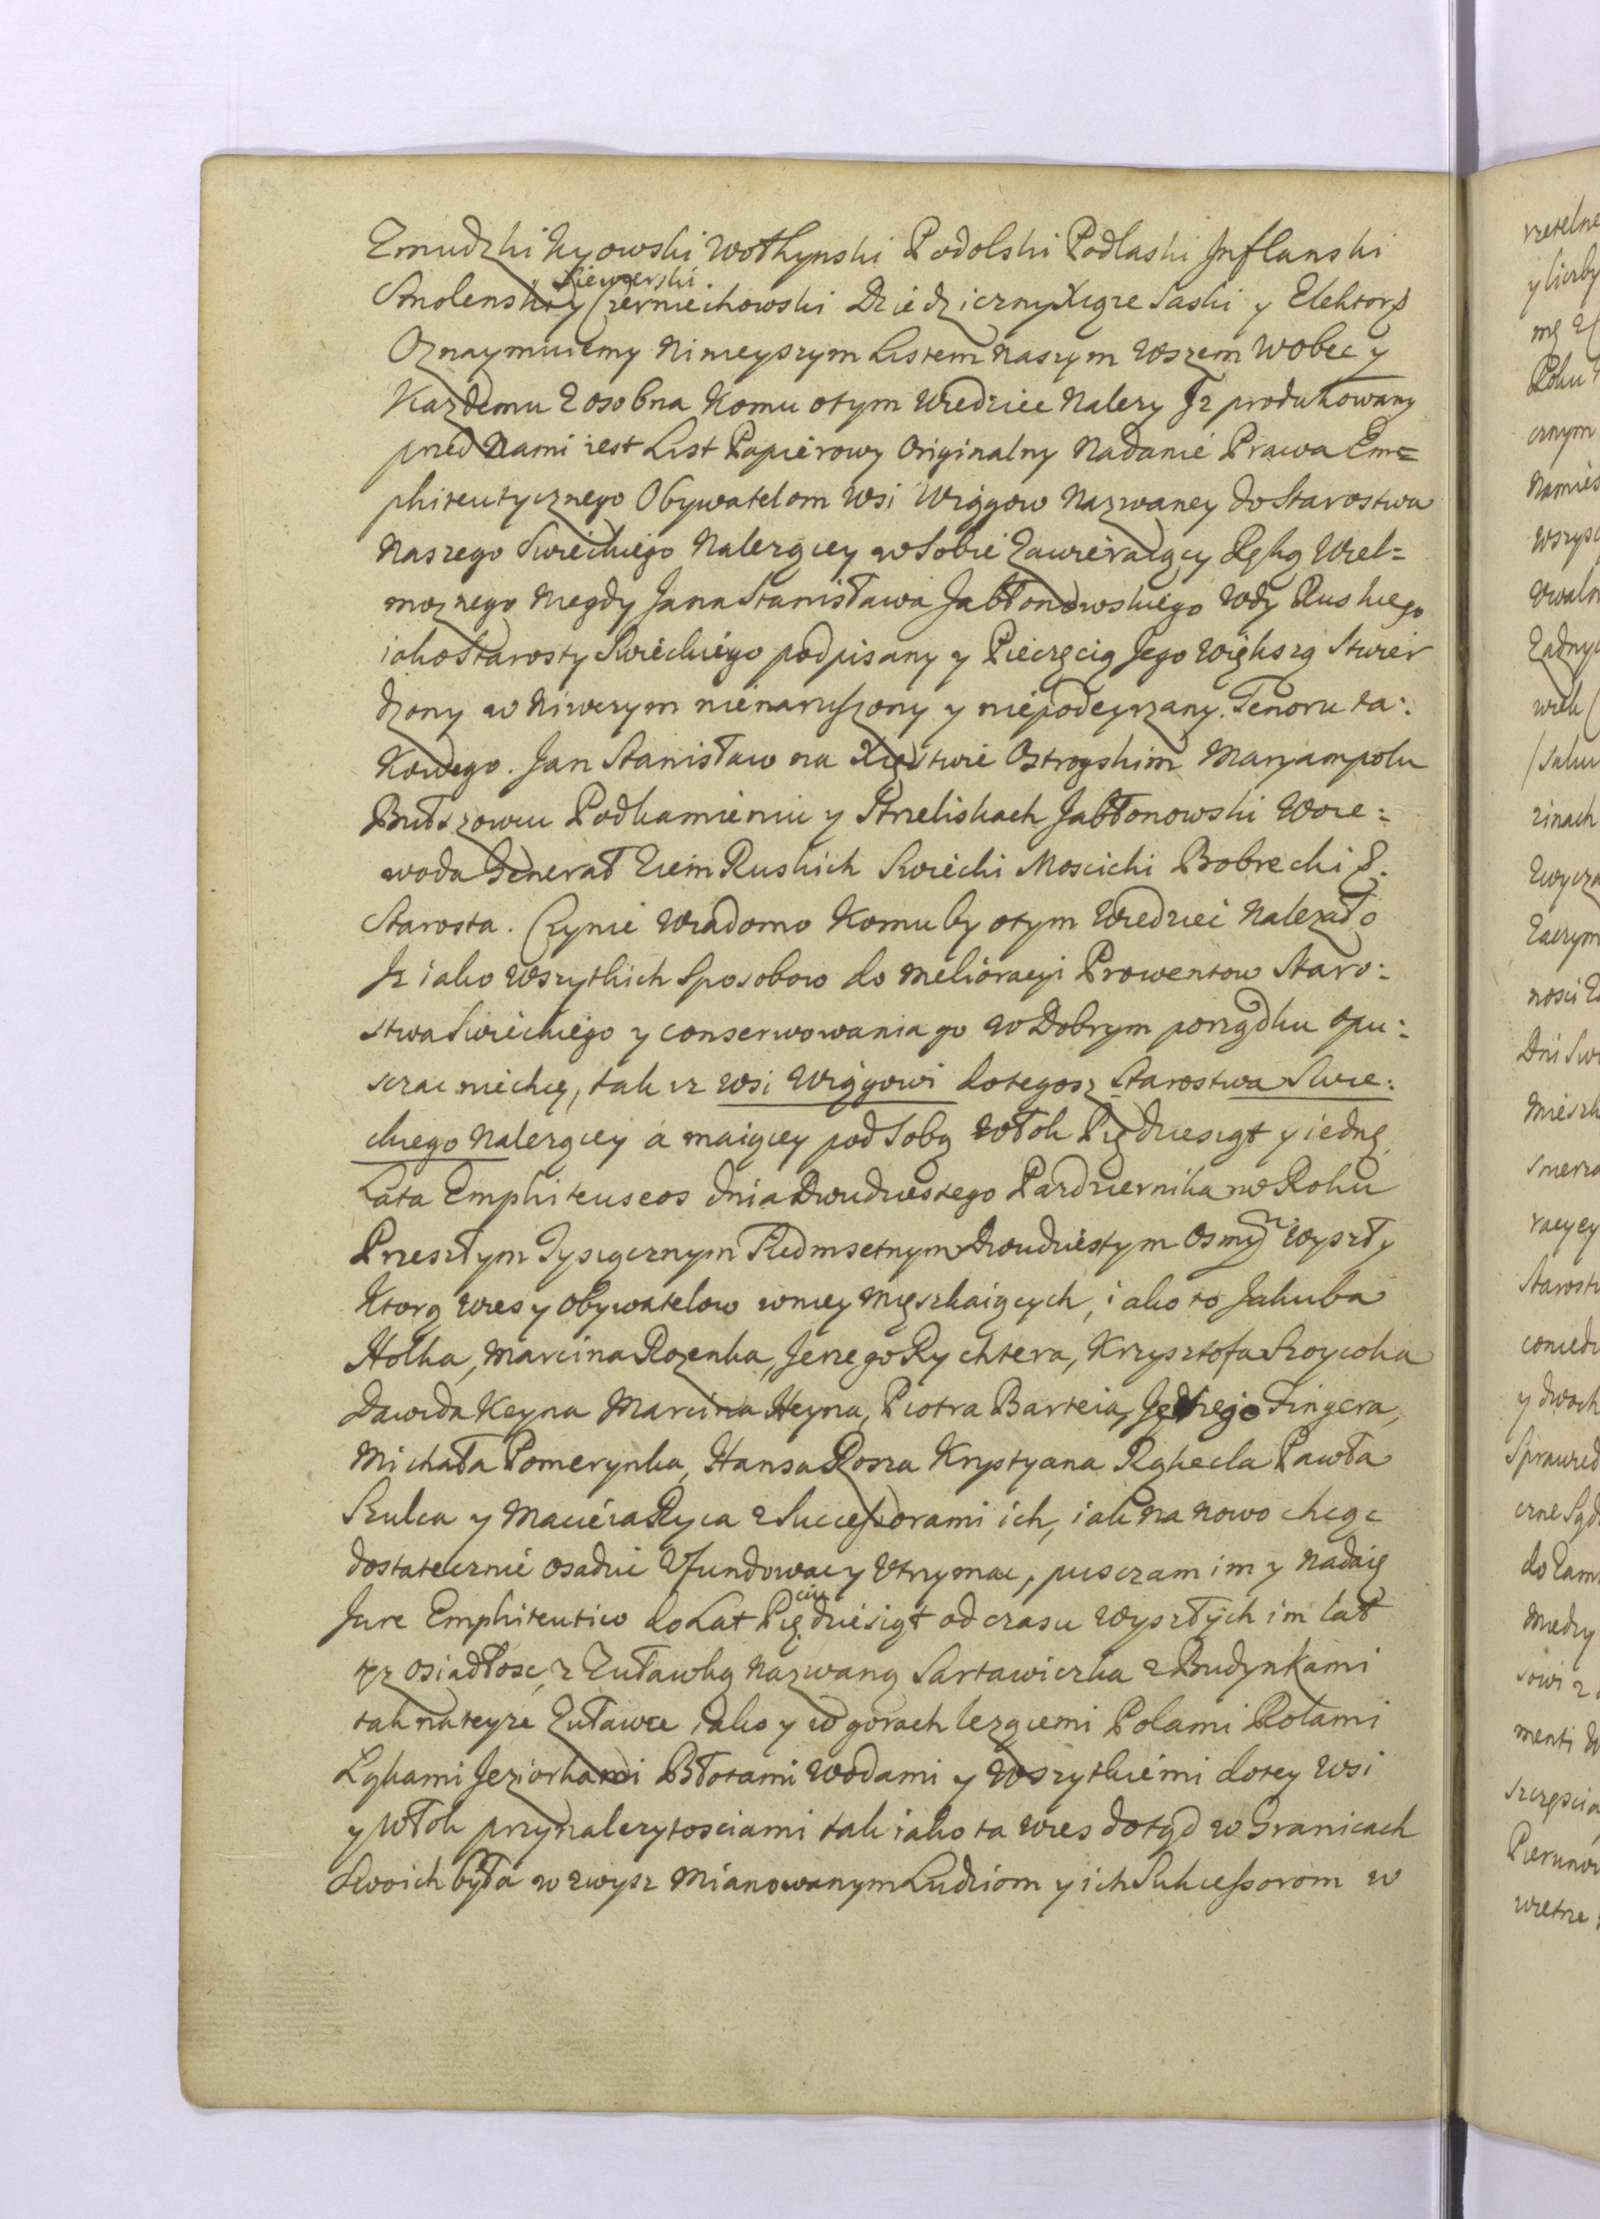 Zmudzki Kyowski Wołhynski Podolski Podlaski Inflanski
Smolenski Siewierski y Czerniechowski Dziedziczny Xiąże Saski y Elektor
Oznaymuiemy Ninieyszym Listem Naszym Wszem Wobec y
Kazdemu Zosobna Komu otym Wiedziec Nalezy Jz produkowany
przed Nami iest List Papierowy Originalny Nadanie Prawa Em=
phiteutycznego Obywatelom Wsi Wiągow Nazwaney do Starostwa
Naszego Swieckiego Nalezącey w Sobie Zawieraiący Ręką Wiel=
moznego Niegdy Jana Stanisława Jabłonowskiego Wdy Ruskiego
iako Starosty Swieckiego podpisany y Pieczęcią Jego Większą Stwier
dzony w Niwczym nienaruszony y niepodeyrzany. Tenoru ta:
Kowego. Jan Stanisław na Xięstwie Ostrogskim Maryampolu
Bułszowcu Podkamieniu y Strzeliskach Jabłonowski Woie:
woda Generał Ziem Ruskich Swiecki Moscicki Bobrecki &.
Starosta. Czynie Wiadomo Komuby otym Wiedziec Nalezało
Jz iako Wszytkich Sposobow do Melioracyi Prowentow Staro:
stwa Swieckiego y conserwowania go w Dobrym porządku opu:
szczac niechcę, tak iz Wsi Wiągowi do tegosz Starostwa Swie:
ckiego Nalezącey a maiącey pod Sobą Włok Pięcdziesiąt y iednę
Lata Emphiteuseos dnia Dwudziestego Pazdziernika w Roku
Przeszłym Tysiącznym Siedmsetnym Dwudziestym Osmym Wyszły
Ktorą Wies y Obywatelow wniey Mięszkaiących, iako to Jakuba
Holka, Marcina Rozenka, Jerzego Rychtera, Krzysztofa Szoycoka
Dawida Keyna Marcina Heyna, Piotra Barteia, Jędrzeja Fingera,
Michała Pomerynka, Hansa Rosza Krystyana Rękecla Pawła
Szulca y Macieia Ryca z Successorami ich, iak na nowo chcąc
dostatecznie osadzic Ufundowac y Utrzymac, puszczam im y Nadaię
Jure Emphiteutico do Lat Pięciudziesiąt od czasu Wyszłych im lat
tęz osiadłosc, z Zuławką Nazwaną Sartawiczka z Budynkami
tak na teyze Zuławce, iako y w gorach lezącemi Polami Rolami
Ląkami Jeziorkami Błotami Wodami y Wszytkiemi do tey Wsi
y Włok przynalezytosciami tak iako ta Wies dotąd w Granicach
Swoich była w zwysz Mianowanym Ludziom y ich Sukcessorom w